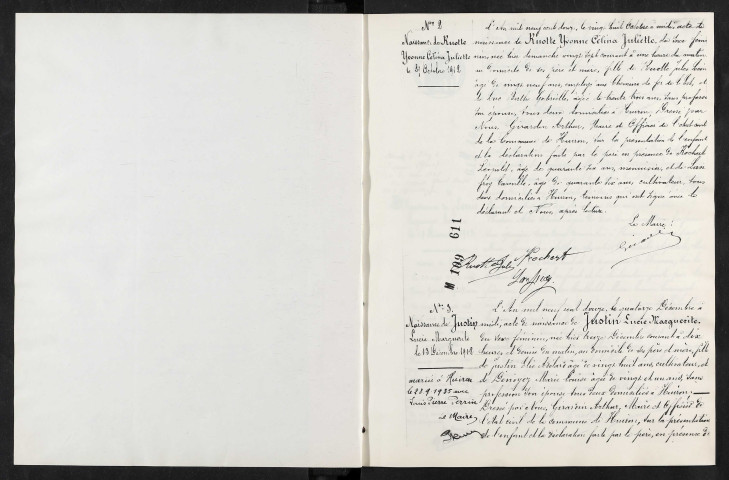 Nos 2
Naissance de Ruotte
Yvonne Célina Juliette
le 27 Octobre 1912
L'An mil neuf cent douze, le vingt huit Octobre à midi, acte de
naissance de Ruotte Yvonne Célina Juliette, du sexe fémi
nin, née hier dimanche vingt sept courant à une heure du matin
au domicile de ses père et mère, fille de Ruotte, Jules
âgé de neuf ans, employé aux chemins de fer de l'Est, et
de Gabrielle, âgée de trente trois ans, sans profession
son épouse, tous deux domiciliés à Dressé par
Nous Girardin Arthur, Maire et Officier de l'état civil
de la Commune de sur la présentation de l'enfant
et la déclaration faite par le père en présence de Rochert
Léopold, âgé de quarante six ans, menuisier, et de
Camille, âgé de quarante six ans, cultivateur, tous
deux domiciliés à témoins qui ont signé avec le
déclarant et Nous, après lecture.
Le Maire :
M 109 611
Ruotte Jules
Rochert
Nos 3.
Naissance de Justin
Lucie Marguerite
le 13 Décembre 1912
mariée à
le 23.9.1935 avec
Louis Pierre Perrin
le Maire
L'An mil neuf cent douze, le quatorze Décembre à
midi, acte de naissance de Justin Lucie Marguerite
du sexe féminin, née hier treize Décembre courant à dix
heures et demie du matin, au domicile de ses père et mère, fille
de Justin Elie âgé de vingt huit ans, cultivateur, et
de Marie Louise âgée de vingt et un ans, sans
profession son épouse tous deux domiciliés à
Dressé par Nous, Girardin Arthur, Maire et officier de
l'état civil de la commune de sur la présentation
de l'enfant et la déclaration faite par le père, en présence de